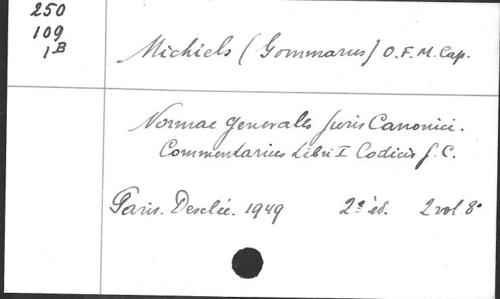 250
109
1B
Michiels (Gommarus) O.F.M.Cap.
Normae Generales Juris Canonici.
Commentarius Libri I Codicis J.C.
Paris. Desclée. 1949 2e éd. 2 vol 8°